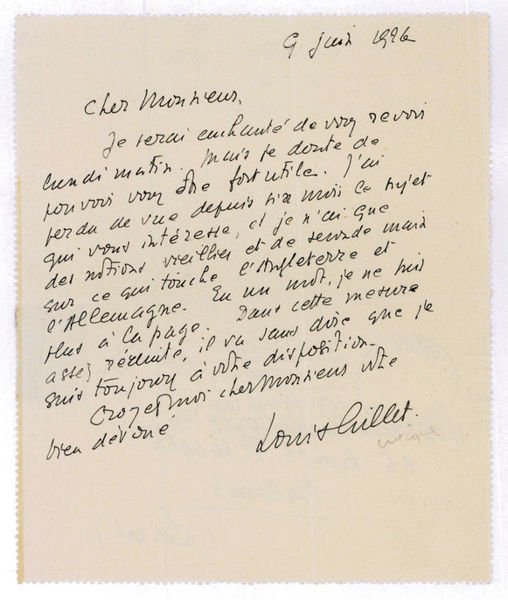 9 juin 1926
Cher Monsieur,
Je serai enchanté de vous revoir
lundi matin. Mais je doute de
pouvoir vous être fort utile. J'ai
perdu de vue depuis six mois ce sujet
qui vous intéresse, et je n'ai que
des notions vieillies et de seconde main
sur ce qui touche l'Angleterre et
l'Allemagne. En un mot, je ne suis
plus à la page. Dans cette mesure
assez réduite, il va sans dire que je
suis toujours à votre disposition.
Croyez moi cher Monsieur votre
bien dévoué
Louis Gillet.
critique